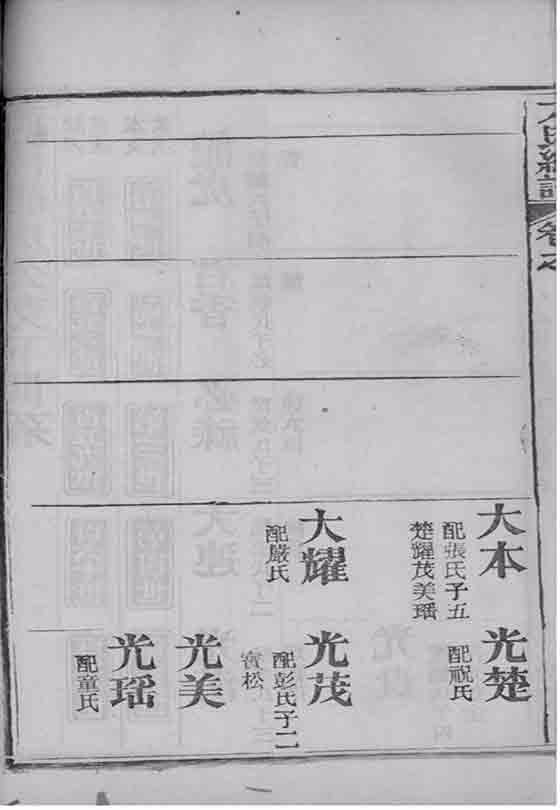 氏統譜
卷之
大本
配張氏子五
楚耀茂美瑶
大耀
配嚴氏
光楚
配祝氏
光茂
配彭氏子二
松
光美
光瑶
配童氏